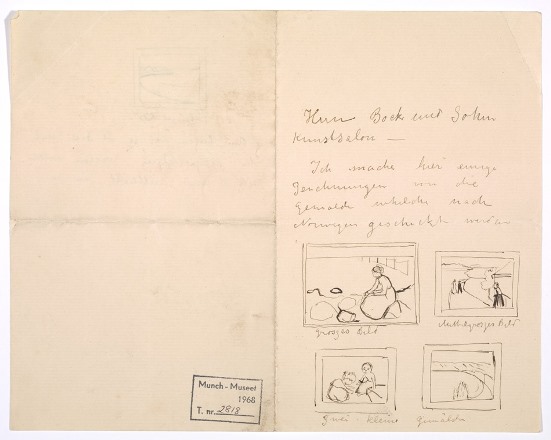 Herrn Bock und Sohn
Kunstsalon —
Ich mache hier einige
Zeichnungen von die
Gemälde whelche nach
Norwegen geschickt
grosses Bild
Mittelgrosses Bild
Zwei kleine Gemälde
Munch - Museet
1968
T. nr. 2818